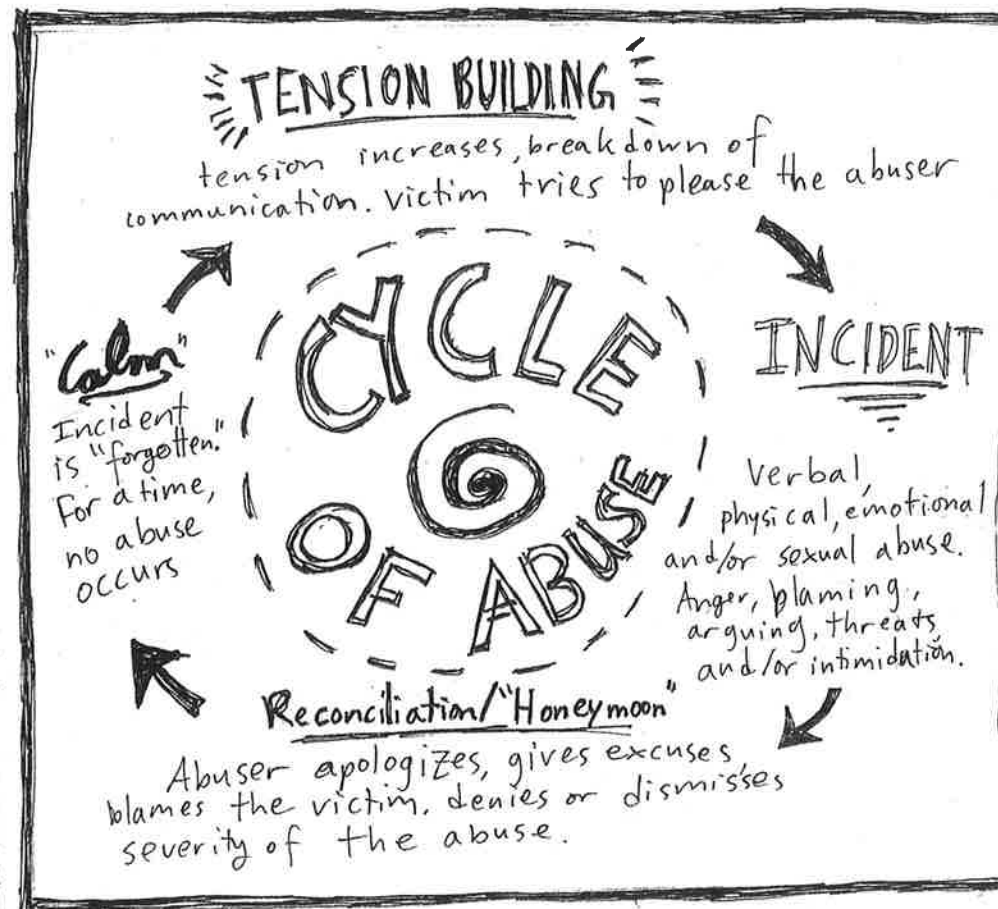 TENSION BUILDING
tension increases, breakdown of
communication. victim tries to please the abuser
INCIDENT
Verbal,
physical, emotional
and/or sexual abuse.
Anger, blaming,
arguing, threats
and/or intimidation.
Reconciliation/"Honeymoon"
Abuser apologizes, gives excuses,
blames the victim, denies or dismisses
severity of the abuse.
"Calm"
Incident
is "forgotten."
For a time,
no abuse
occurs
CYCLE
OF ABUSE